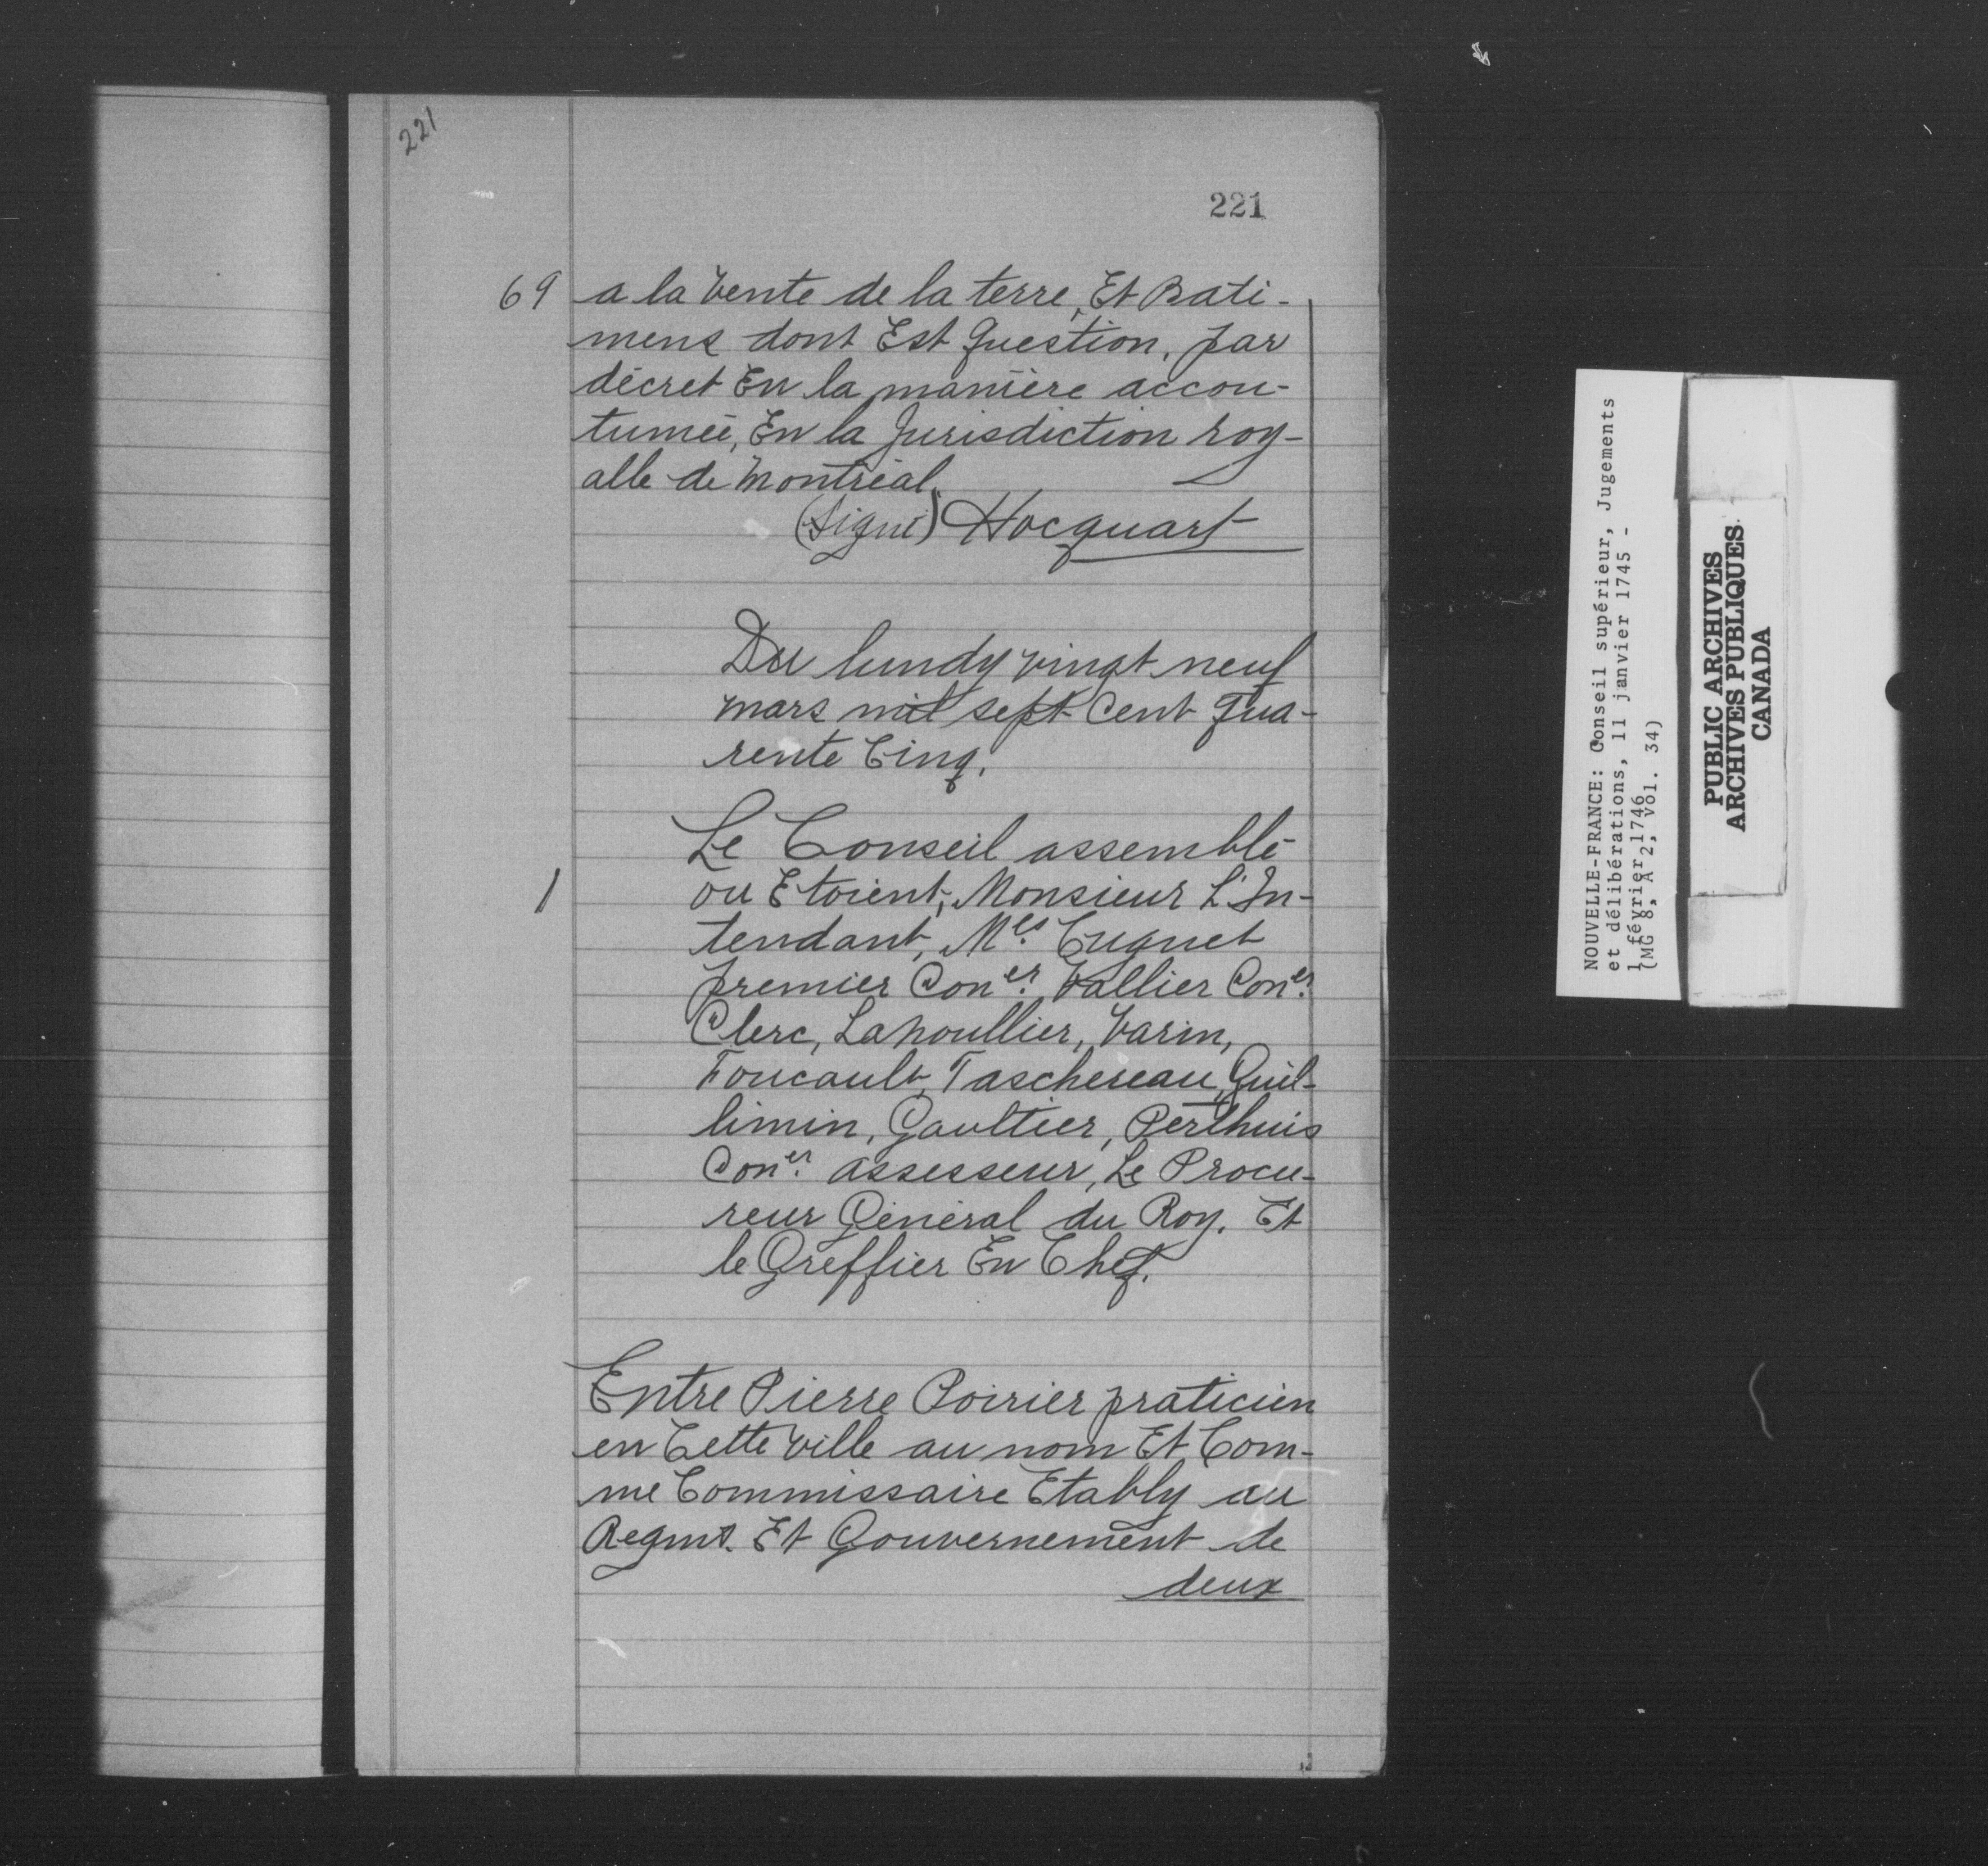 221
221
69 a la Vente de la terre, Et Bati-
mens dont Est question, par
décret En la manière accou-
tumée, En la Jurisdiction roy-
alle de Montréal.
(Signé) Hocquart
Du lundy vingt neuf
mars mil sept Cent qua-
rente Cinq.
Le Conseil assemblé
1 ou Etoient, Monsieur L'In-
tendant, Mes. Cugnet
premier Coner. Vallier Coner.
Clerc, Lanoullier, Varin,
Foucault, Taschereau, Guil-
limin, Gaultier, Perthuis
Coner. assesseur, Le Procu-
reur Général du Roy. Et
le Greffier En Chef.
Entre Pierre Poirier praticien
en Cette ville au nom Et Com-
me Commissaire Etably au
Regmt. Et Gouvernement de
deux
NOUVELLE-FRANCE: Conseil supérieur, Jugements
et délibérations, 11 janvier 1745 -
1 février 1746
(MG 8, A 2, vol. 34)
PUBLIC ARCHIVES
ARCHIVES PUBLIQUES
CANADA